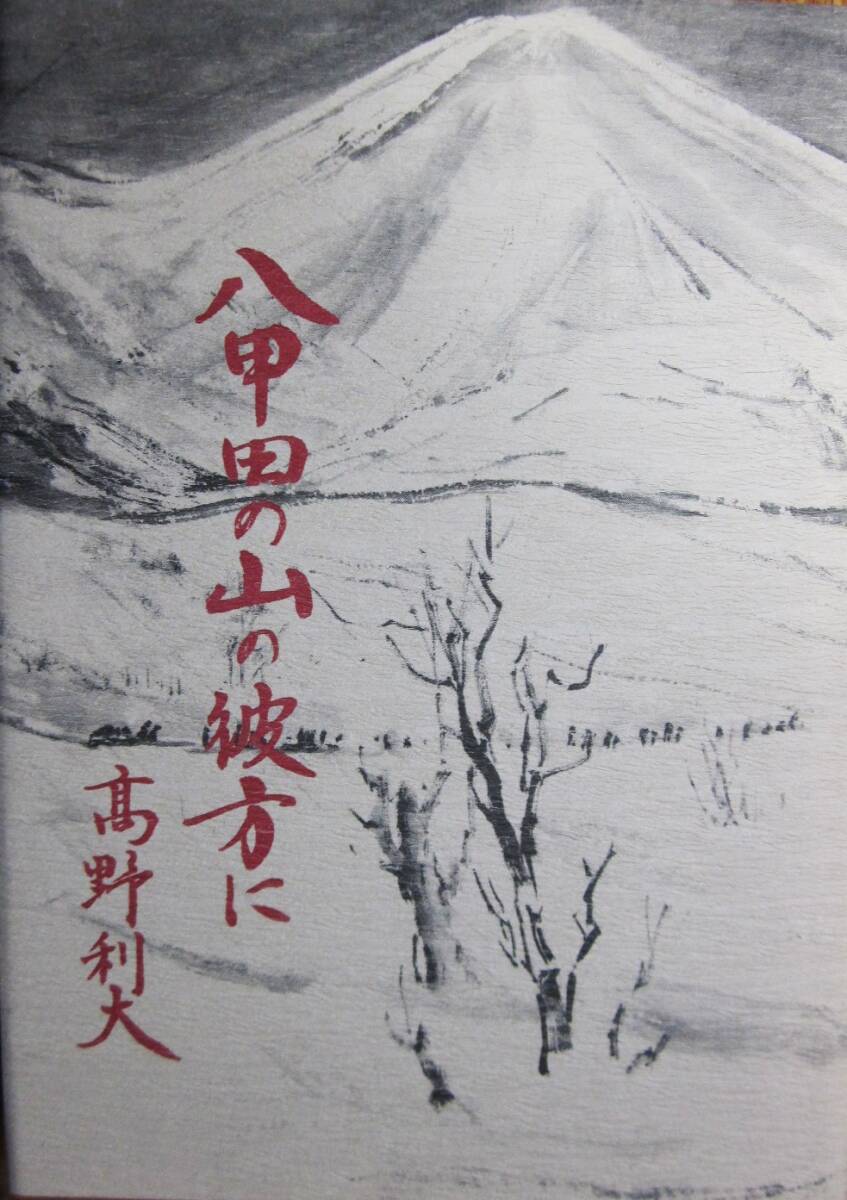 八甲田の山の彼方に
髙野利大